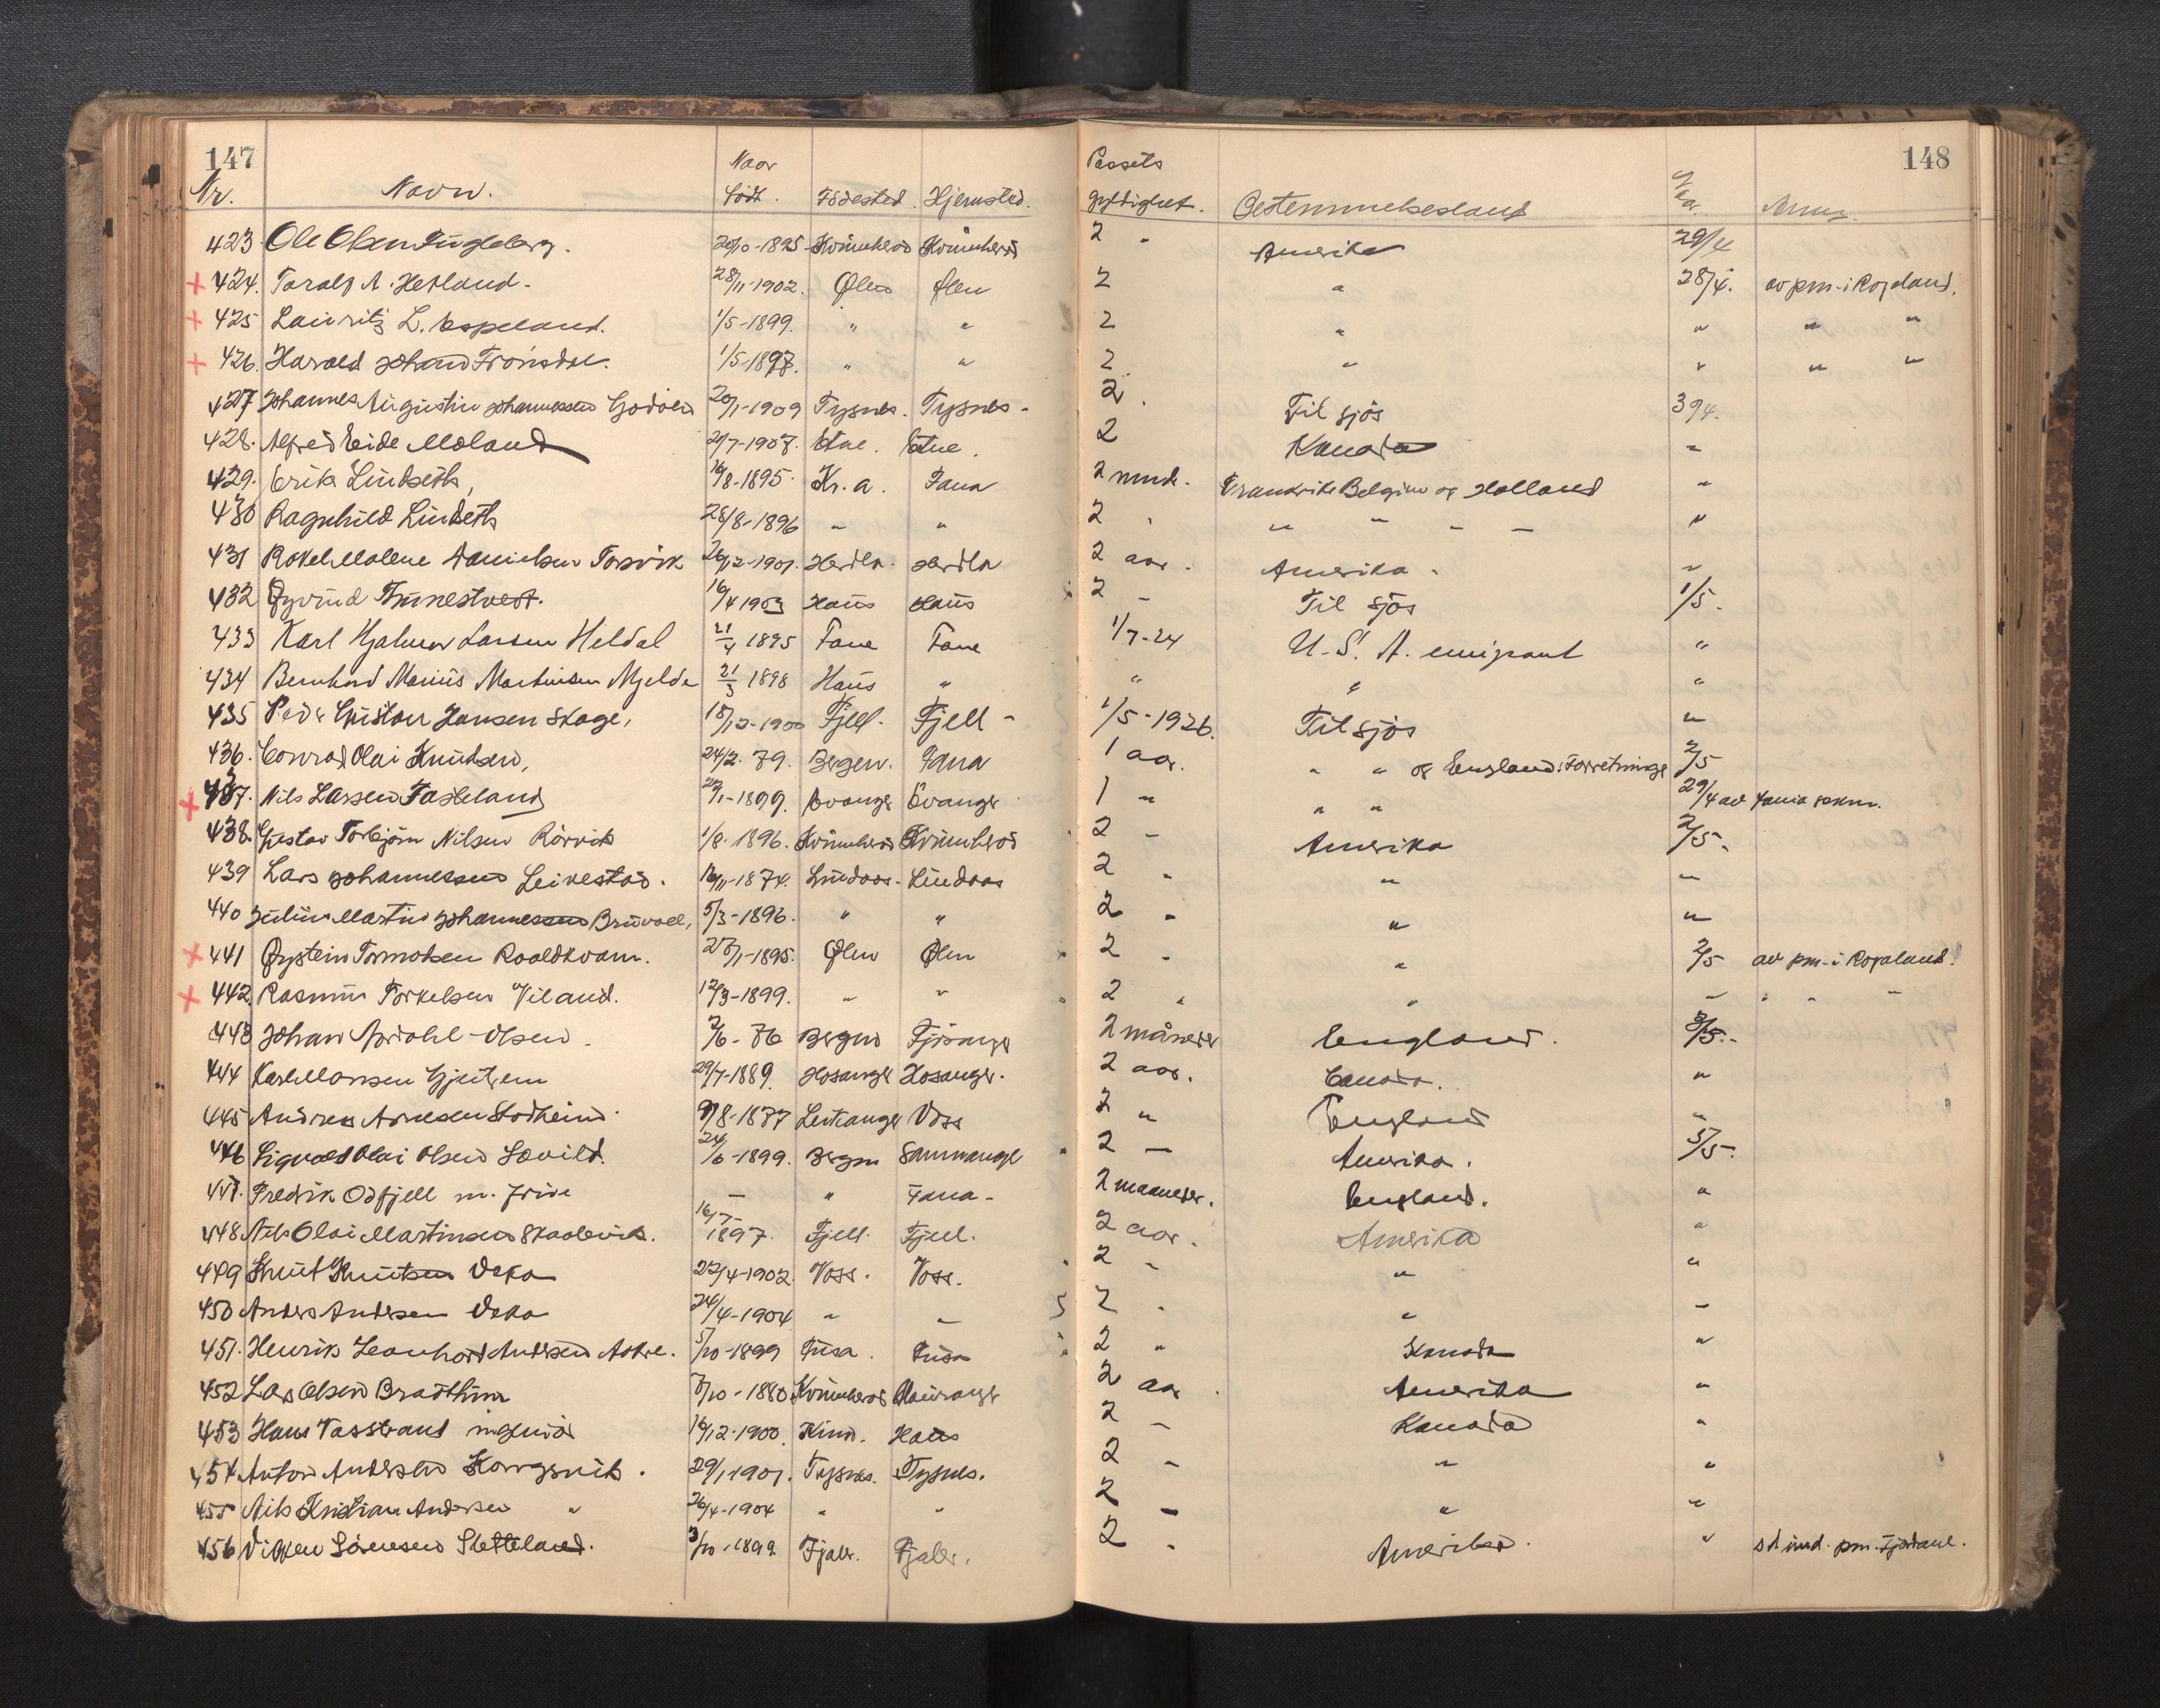 147
148
Nr. Navn. Naar født. Fødested. Hjemsted. Passets gyldighet. Bestemmelsesland Anm.
423 Ole Olsen 20/10-1895 Kvinnherad Kvinnherad 2 - Amerika 29/4
+ 424. Toralf A. Hetland. 28/11-1902. Ølen Ølen 2 " 28/4. av pm. i Rogaland.
+ 425 Lauritz L. Espeland. 1/5-1899. " " 2 " " " "
+ 426. Harald Johan 1/5-1897. " " 2 " " " "
427 Johannes Augustin Johannessen Godøen 20/1-1909 Tysnes. Tysnes- 2. Til sjøs
428. Alfred Eide Moland Etne. Etne. 2 Kanada "
429. Erik Lindseth, 16/8-1895. Kr.a. Fana 2 mnd. Frankrike Belgien og Holland "
430 Ragnhild Lindseth 28/8-1896 " " 2 " " " " "
431 Rakel Malene Danielsen Torsvik 26/12-1901. Herdla. Herdla 2 aar. Amerika. "
432 Øyvind 16/4 1903 Haus Haus 2 - Til sjøs 1/5.
433 Karl Hjalmar Larsen Heldal 21/4 1895 Fane Fane 1/7-24 U.S.A. emigrant "
434 Bernhard Marius Martinsen Mjelde 21/3 1898 Haus " " " "
435 Peder Gustav Jansen Skage, 18/12-1900 Fjell. Fjell- 1/5-1926. Til sjøs "
436. Conrad Olai Knudsen, 24/2. 79. Bergen. Fana 1 aar. " " og England: Forretninge 2/5
+ 437. Nils Larsen Fasteland 29/1-1899. Evanger Evanger 1 " " " 29/4 av
438. Gustav Torbjørn Nilsen Rørvik 1/8-1896. Kvinnherad Kvinnherad 2 - Amerika 2/5.
439 Lars Johannessen Leivestad. 16/11-1874. Lindaas- Lindaas 2 - " "
440 Julius Martin Johannessen 5/3-1896. " " 2 - " "
+ 441 Øystein Tormodsen Roaldkvam. 27/1-1895. Ølen Ølen 2 - " 2/5 av pm. i Rogaland.
+ 442 Rasmus Torkelsen Viland. 12/3-1899. " " 2 " " " " " "
443 Johan -Olsen. 2/6-76 Bergen Fjøsanger 2 måneder England. 3/5.
444 Karl Monsen 29/7-1889. Hosanger Hosanger. 2 aar. Canada. "
445 Andreas Arnesen Stadheim. 9/8-1877 Leikanger Voss 2 " England "
446 Sigvald Olai Olsen 24/6-1899. Bergen Samnanger 2 - Amerika. 5/5.
447. Fredrik Odfjell m. frue - " Fana- 2 maaneder. England. "
448 Nils Olai Martinsen Skaalevik. 16/7-1897. Fjell. Fjell. 2 aar. Amerika "
449 Knut Knutsen Væka 22/4-1902. Voss. Voss. 2 - " "
450 Anders Andersen Væka 24/4-1904 " " 2 - " "
451. Henrik Leonhard Andersen 5/10-1899 Fusa. Fusa 2 " Kanada "
452 Lars Olsen 7/10-1880 Kvinnherad 2 aar. Amerika "
453 Hans Vasstrand ingeniør 16/12-1900. Kinn. Haus 2 - Kanada "
454 Anton Andersen 29/1-1901. Tysnes. Tysnes. 2 - " "
455 Nils Kristian Andersen " 26/4-1904 " " 2 - " "
456 Sørensen Sletteland. 3/10-1899 Fjaler. Fjaler. 2 - Amerika. "